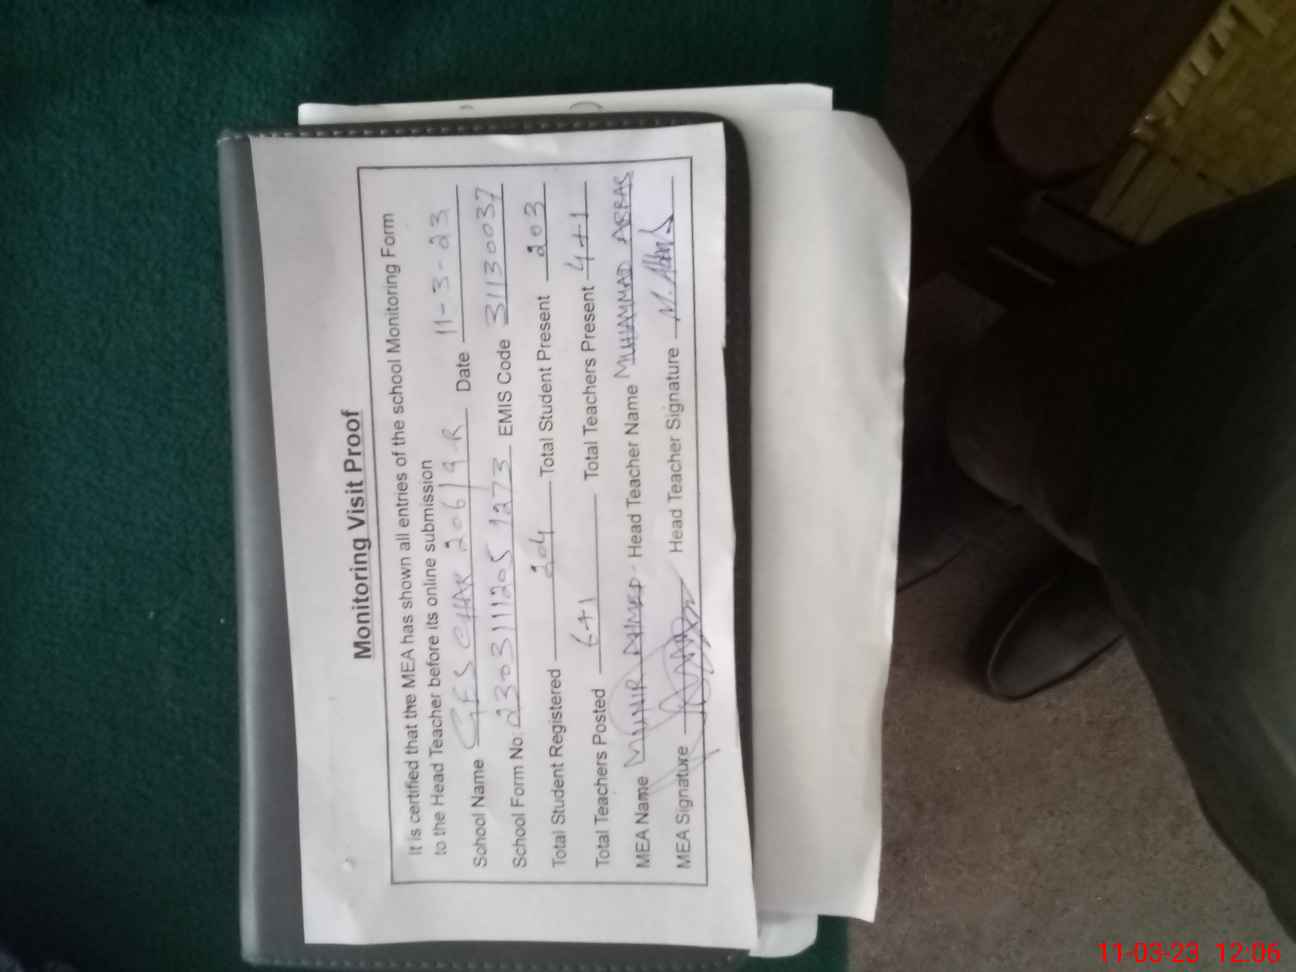 Monitoring Visit Proof
It is certified that the MEA has shown all entries of the school Monitoring Form
to the Head Teacher before its online submission
School Name GES CHAK 206/9-R Date 11-3-23
School Form No 23031112051273 EMIS Code 31130037
Total Student Registered 204 Total Student Present 203
Total Teachers Posted 6+1 Total Teachers Present 4+1
MEA Name MUNIR AHMED - Head Teacher Name MUHAMMAD ABBAS
MEA Signature Head Teacher Signature M. Abbas
11-03-23 12:06